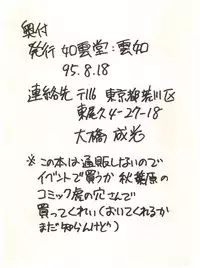 奥付
発行 如雲堂:雲如
95.8.18
連絡先 〒116 東京都荒川区
東尾久4-27-18
大橋 成光
※この本は通販しないので
イベントで買うか秋葉原の
コミック虎の穴さんで
買ってくれい(おいてくれるか
まだ知らんけど)